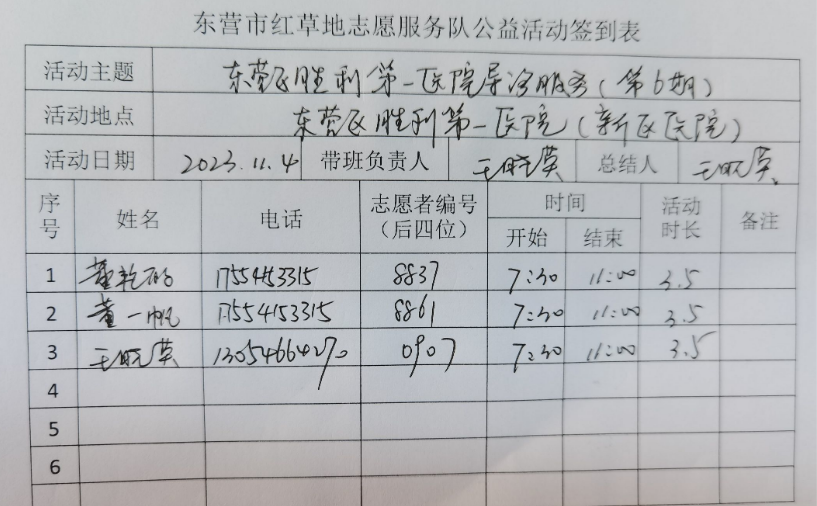 东营市红草地志愿服务队公益活动签到表
活动主题 东营区胜利第一医院导诊服务(第6期)
活动地点 东营区胜利第一医院(新区医院)
活动日期 2023.11.4 带班负责人 王晓英 总结人 王晓英
序号 姓名 电话 志愿者编号(后四位) 时间 开始 结束 活动时长 备注
1 董乾 17554153315 8837 7:30 11:00 3.5
2 董一帆 17554153315 8861 7:30 11:00 3.5
3 王晓英 13054664270 0907 7:30 11:00 3.5
4
5
6